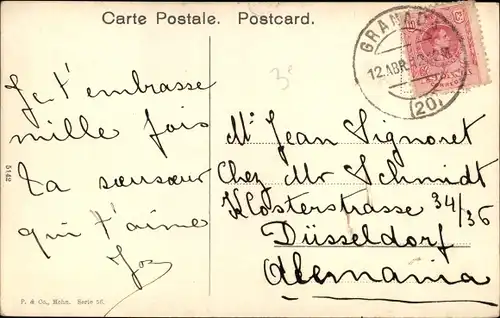 Carte Postale. Postcard.
GRANADA
12.ABR
(20)
Je t'embrasse
mille fois
ta soeusoeur
qui t'aime
Mr Jean Signoret
Chez Mr Schmidt
Klosterstrasse 34/36
Düsseldorf
Alemania
5142
P. & Co., Mchn. Serie 56.